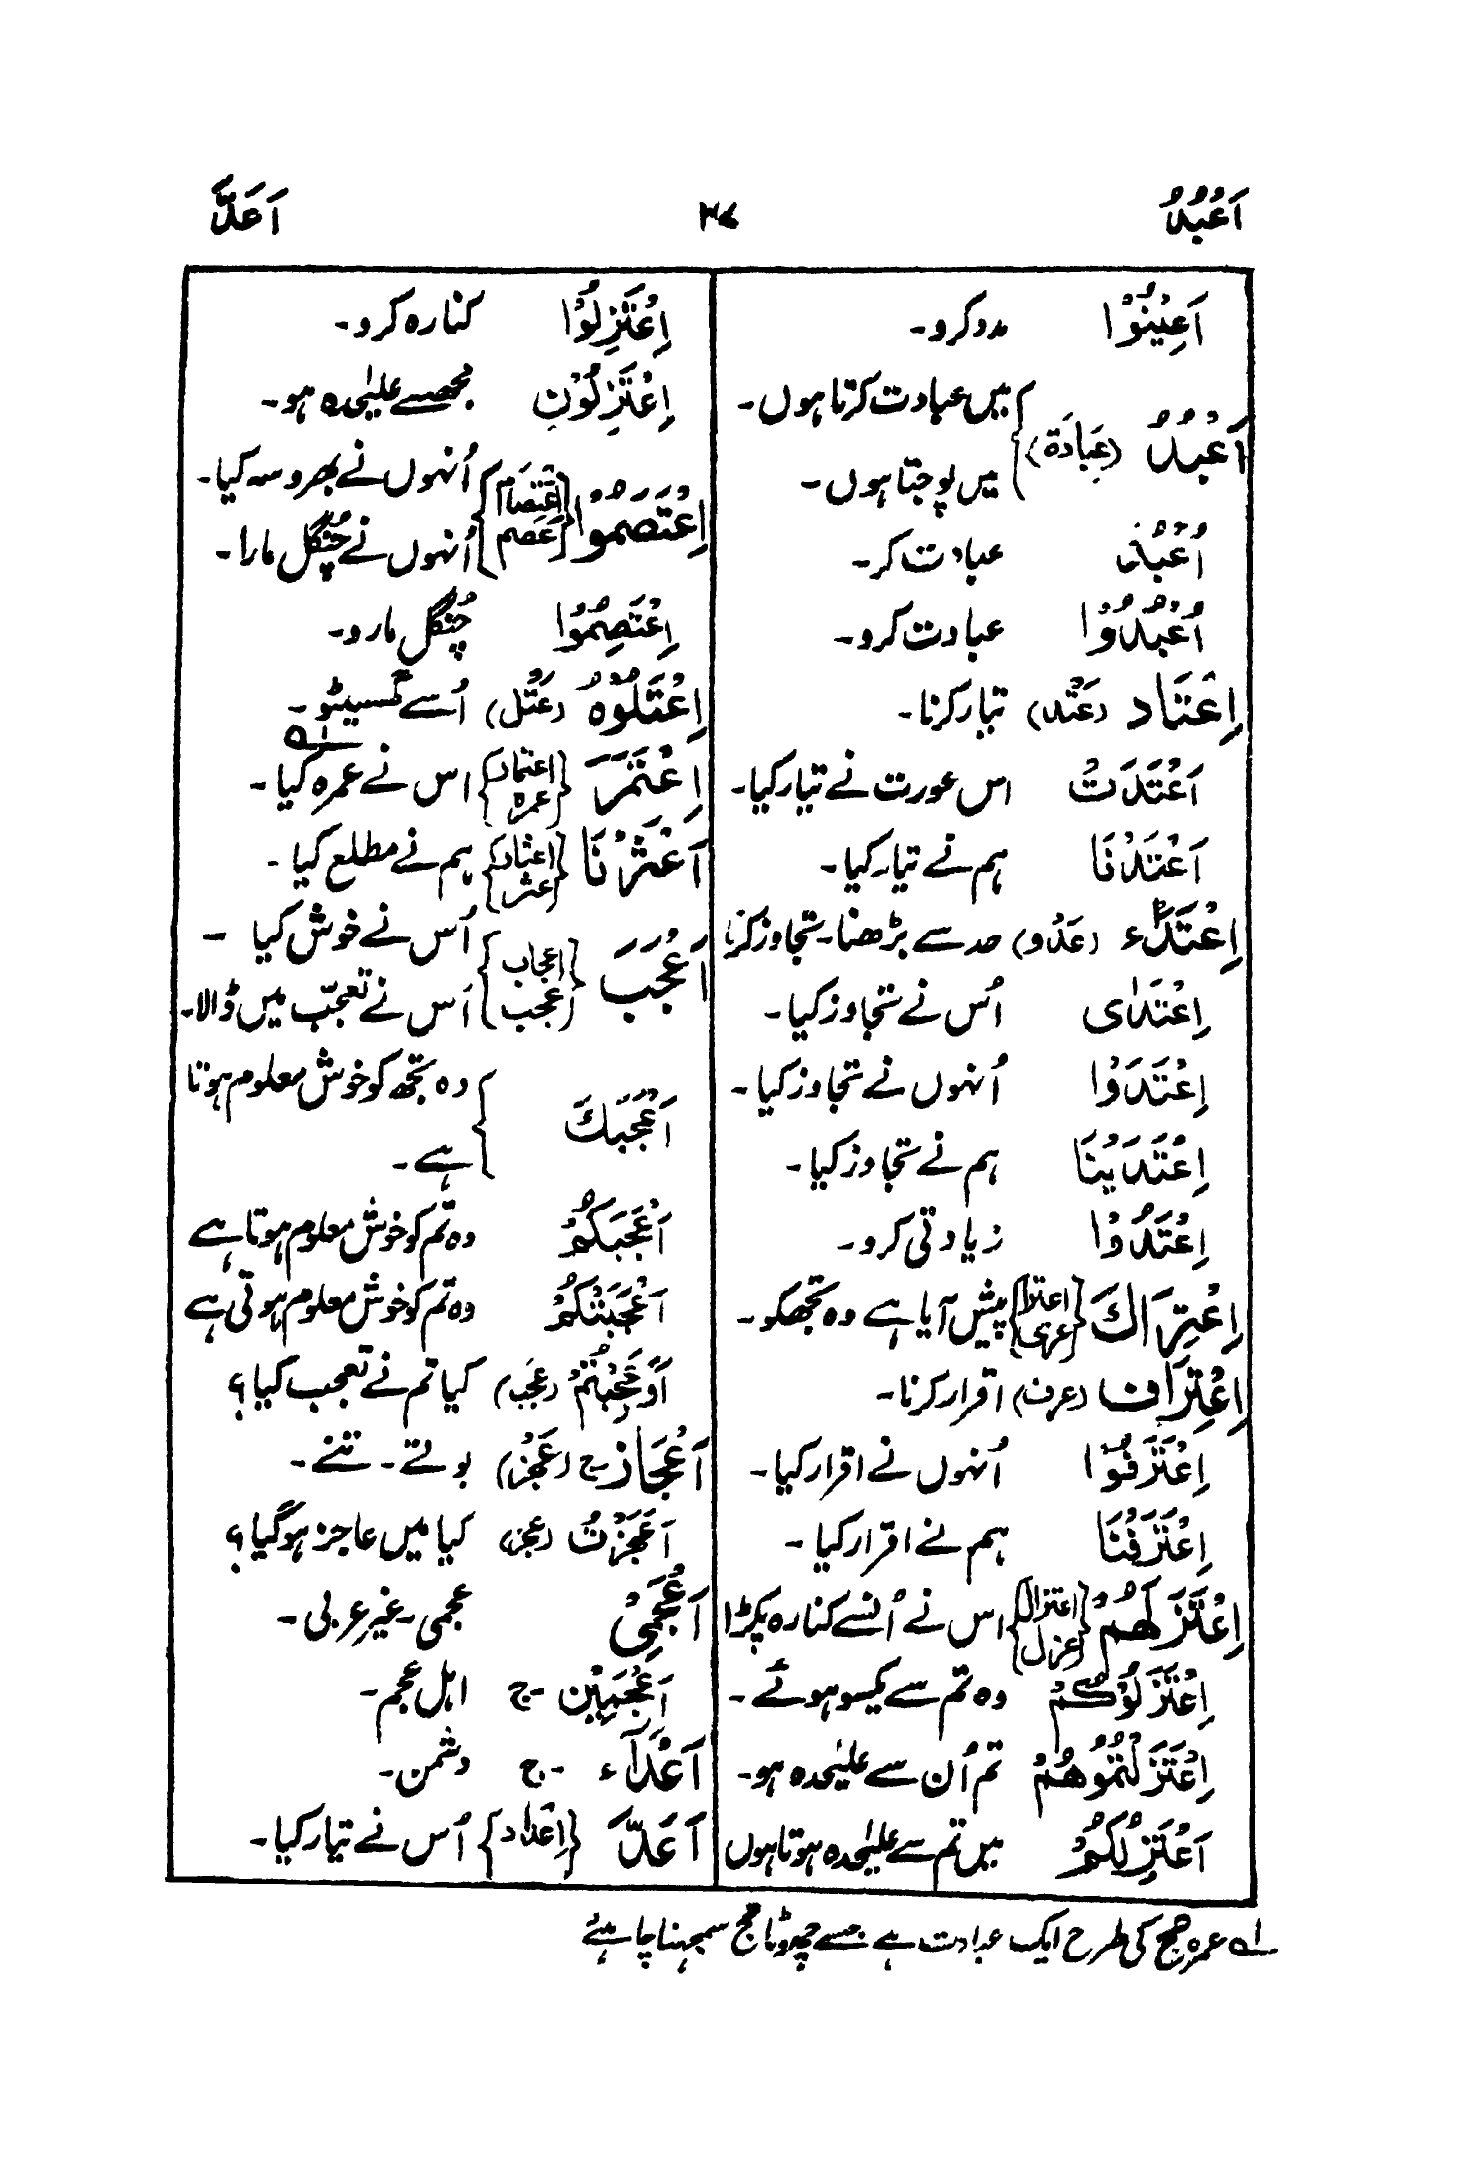 اَعْبُدُ ۳۷ اَعَدَّ
اَعِيْنُوْا مدد کرو۔
اَعْبُدُ (عِبَادَة) میں عبادت کرتا ہوں۔
میں پوجتا ہوں۔
اُعْبُدْ عبادت کر۔
اُعْبُدُوْا عبادت کرو۔
اِعْتَاد (عَتْد) تیار کرنا۔
اَعْتَدَتْ اس عورت نے تیار کیا۔
اَعْتَدْنَا ہم نے تیار کیا۔
اِعْتَدَاء (عَدْو) حد سے بڑھنا۔ تجاوز کرنا
اِعْتَدٰى اُس نے تجاوز کیا۔
اِعْتَدَوْا اُنہوں نے تجاوز کیا۔
اِعْتَدَيْنَا ہم نے تجاوز کیا۔
اِعْتَدُوْا زیادتی کرو۔
اِعْتِرَاكَ {اعترا عری} پیش آیا ہے وہ تجھکو۔
اِعْتِرَاف (عرف) اقرار کرنا۔
اِعْتَرَفُوْا اُنہوں نے اقرار کیا۔
اِعْتَرَفْنَا ہم نے اقرار کیا۔
اِعْتَزَلَهُمْ {اعتزال عزل} اس نے اُنسے کنارہ پکڑا
اِعْتَزَلُوْكُمْ وہ تم سے یکسو ہوئے۔
اِعْتَزَلْتُمُوْهُمْ تم اُن سے علیٰحدہ ہو۔
اَعْتَزِلُكُمْ میں تم سے علیٰحدہ ہوتا ہوں
اِعْتَزِلُوْا کنارہ کرو۔
اِعْتَزِلُوْنِ مجھسے علیٰحدہ ہو۔
اِعْتَصَمُوْا {اِعْتِصَام عَصم} اُنہوں نے بھروسہ کیا۔
اُنہوں نے چُنگل مارا۔
اِعْتَصِمُوْا چُنگل مارو۔
اِعْتَلُوْهُ (عَتْل) اُسے گھسیٹو۔
اِعْتَمَرَ {اعتمار عمرہ} اس نے عمرہ کیا۔ ؎۱
اَعْثَرْنَا {اعثار عثر} ہم نے مطلع کیا۔
اَعْجَبَ {اعجاب عجب} اُس نے خوش کیا۔
اُس نے تعجّب میں ڈالا۔
اَعْجَبَكَ وہ تجھ کو خوش معلوم ہوتا
ہے۔
اَعْجَبَكُمْ وہ تم کو خوش معلوم ہوتا ہے
اَعْجَبَتْكُمْ وہ تم کو خوش معلوم ہوتی ہے
اَوَعَجِبْتُمْ (عَجَب) کیا تم نے تعجب کیا؟
اَعْجَاز۔ج (عَجُز) بوٹے۔ تنے۔
اَعَجَزْتُ (عجز) کیا میں عاجز ہوگیا؟
اَعْجَمِىْ عجمی۔ غیر عربی۔
اَعْجَمِيْن۔ج اہل عجم۔
اَعْدَاء۔ج دشمن۔
اَعَدَّ {اِعْدَاد} اُس نے تیار کیا۔
؎۱ عمرہ حج کی طرح ایک عبادت ہے جسے چھوٹا حج سمجھنا چاہئے